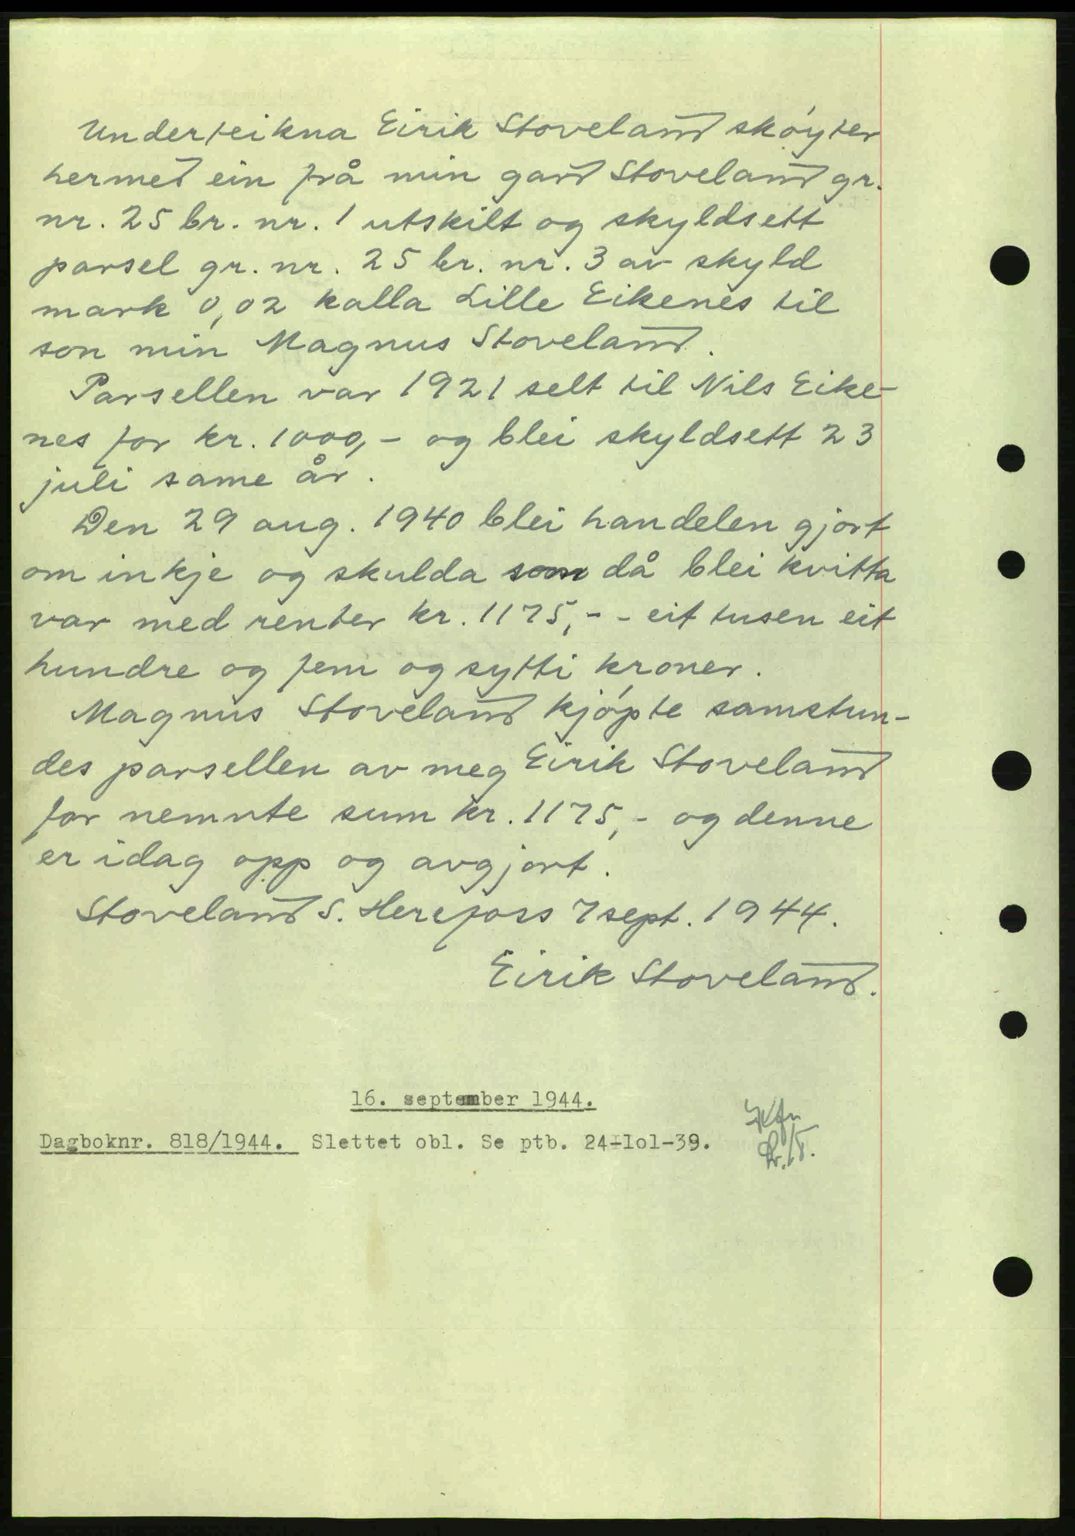 Underteikna Eirik Stoveland skóyter
hermed ein frå min gard Stoveland gr.
nr. 25 br. nr. 1 utskilt og skyldsett
parsel gr. nr. 25 br. nr. 3 av skyld
mark 0,02 kalla Lille Eikenes til
son min Magnus Stoveland.
Parsellen var 1921 selt til Nils Eike-
nes for kr. 1000,- og blei skyldsett 23
juli same år.
Den 29 aug. 1940 blei handelen gjort
om inkje og skulda som då blei kvitta
var med renter kr. 1175,- - eit tusen eit
hundre og fem og sytti kroner.
Magnus Stoveland kjópte samstun-
des parsellen av meg Eirik Stoveland
for nemnte sum kr. 1175,- og denne
er idag opp og avgjort.
Stoveland S. Herefoss 7 sept. 1944.
Eirik Stoveland.
16. september 1944.
Dagboknr. 818/1944. Slettet obl. Se ptb. 24-lol-39.